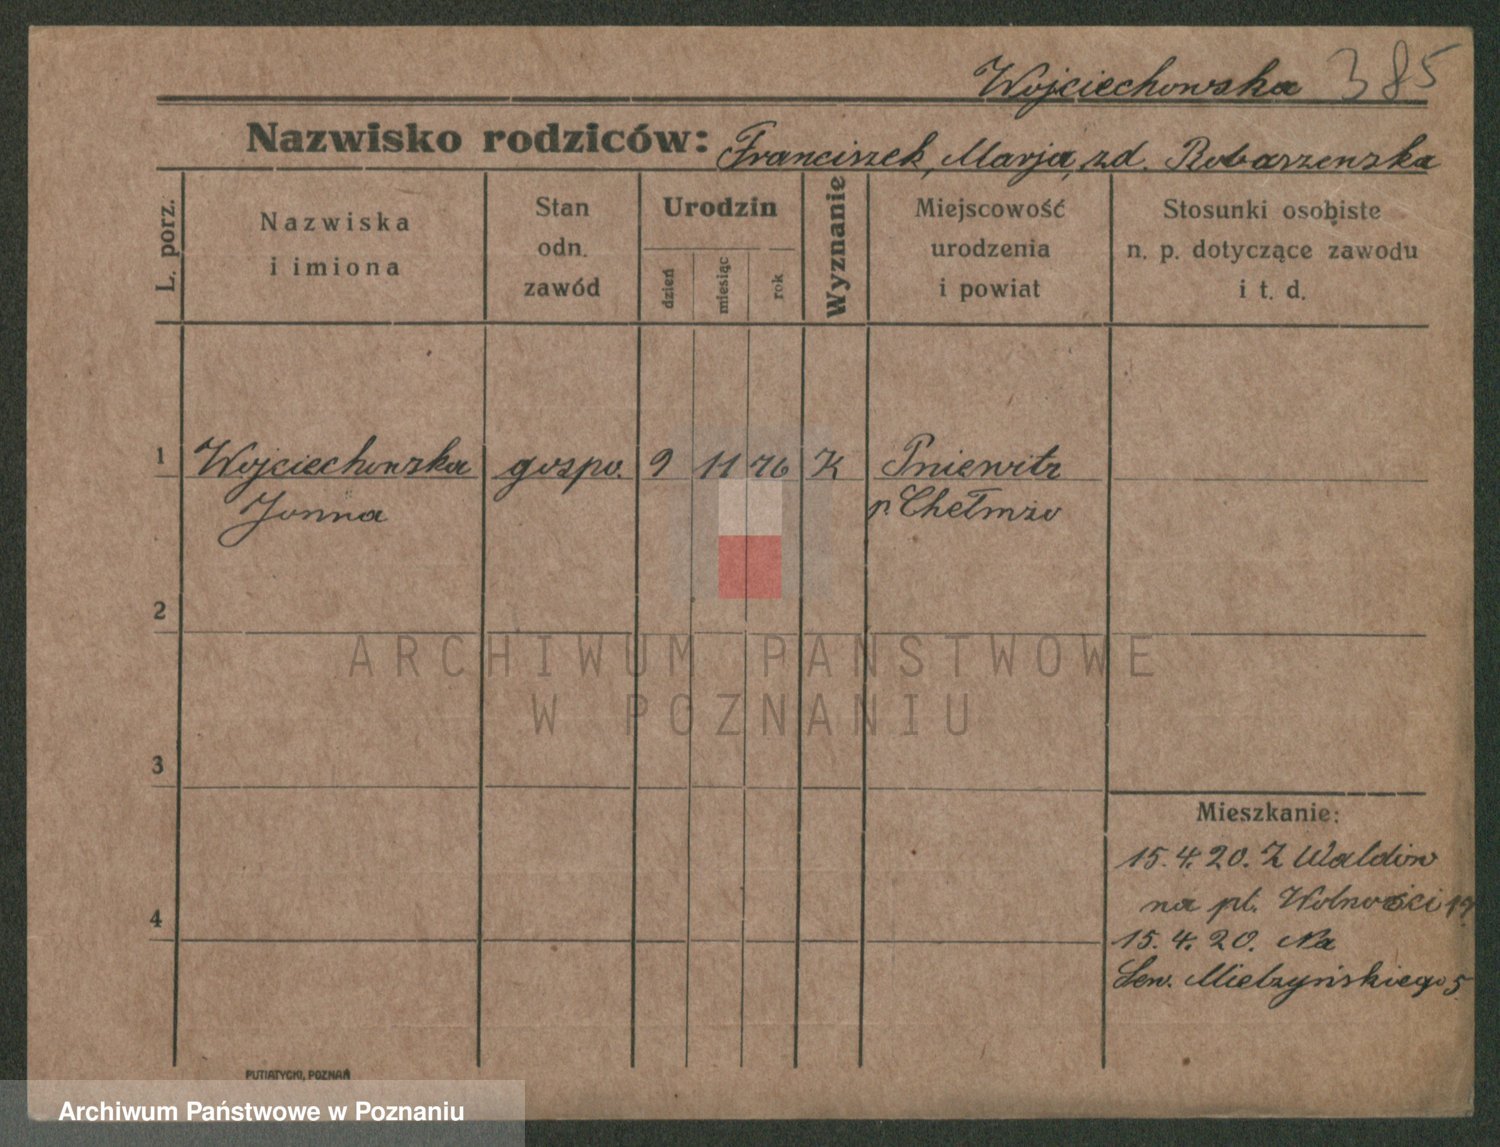 Wojciechowska 385
Nazwisko rodziców: Franciszek, Marja, zd. Robarzewska
L. porz.
Nazwiska
i imiona
Stan
odn.
zawód
Urodzin
dzień
miesiąc
rok
Wyznanie
Miejscowość
urodzenia
i powiat
Stosunki osobiste
n. p. dotyczące zawodu
i t. d.
1 Wojciechowska gospo. 9 11 76 K Pniewitz
Joanna p. Chełmżo
2
ARCHIWUM PAŃSTWOWE
W POZNANIU
3
Mieszkanie:
15. 4. 20. Z Waldow
na pl. Wolności 19
4
15. 4. 20. Na
Sew. Mielżyńskiego 5
PUTIATYCKI, POZNAŃ
Archiwum Państwowe w Poznaniu